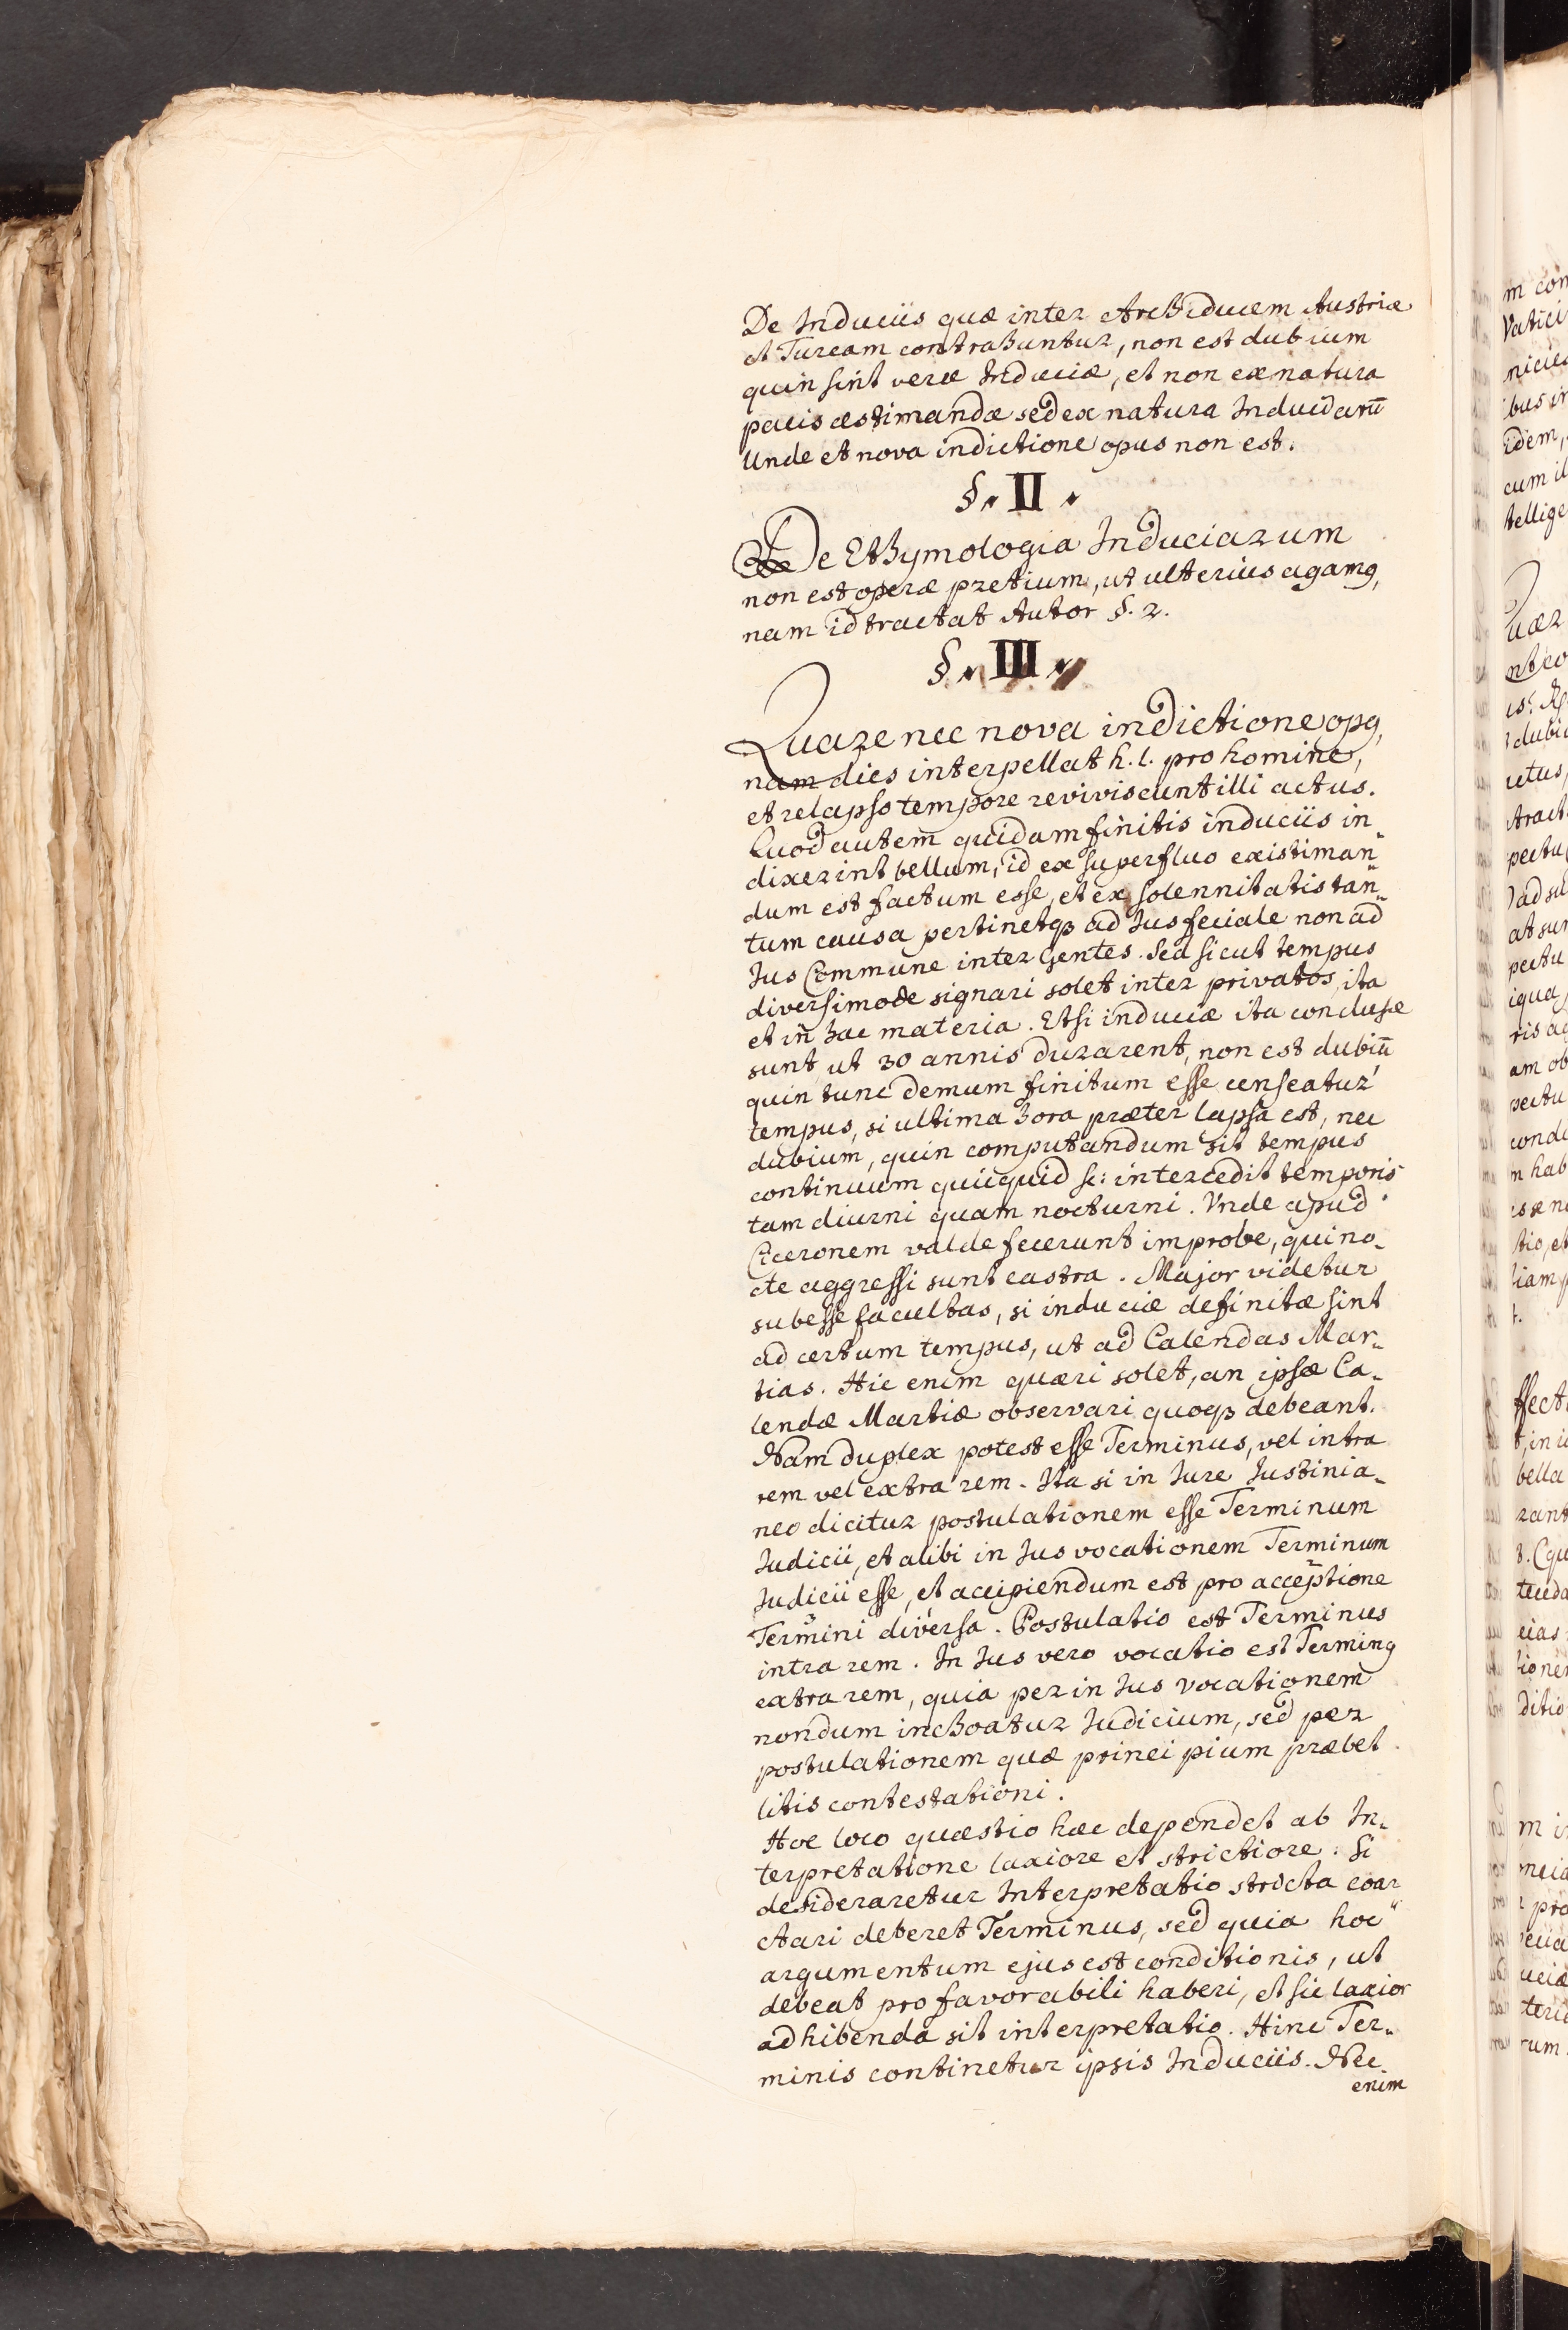 De Induciis quæ inter Archiducem Austriæ
et Turcam contrahuntur, non est dubium
quin sint veræ Induciæ, et non ex natura
pacis æstimandæ sed ex natura Induciarū
Unde et nova indictione opus non est.
§. II.
De Ethymologia Induciarum
non est operæ pretium, ut ulterius agamꝰ,
nam id tractat Autor §. 2.
§. III.
Quare nec nova indictione opꝰ,
nam dies interpellat h. l. pro homine,
et relapso tempore reviviscunt illi actus.
Quod autem quidam finitis induciis in„
dixerint bellum, id ex superfluo existiman„
dum est factum esse, et ex solennitatis tan„
tum causa pertinetqꝫ ad Jus feciale non ad
Jus Commune inter Gentes. Sed sicut tempus
diversimode signari solet inter privatos, ita
et in hac materia. Etsi induciæ ita conclusæ
sunt, ut 30 annis durarent, non est dubiū
quin tunc demum finitum esse censeatur
tempus, si ultima hora præter lapsa est, nec
dubium, quin computandum sit tempus
continuum quicquid sc: intercedit temporis
tam diurni quam nocturni. Vnde apud
Ciceronem valde fecerunt improbe, qui no„
cte aggressi sunt castra. Major videtur
subesse facultas, si induciæ definitæ sint
ad certum tempus, ut ad Calendas Mar„
tias. Hic enim quæri solet, an ipsæ Ca„
lendæ Martiæ observari quoqꝫ debeant.
Nam duplex potest esse Terminus, vel intra
rem vel extra rem. Ita si in Jure Justinia„
neo dicitur postulationem esse Terminum
Judicii, et alibi in Jus vocationem Terminum
Judicii esse, et accipiendum est pro acceptione
Termini diversa. Postulatio est Terminus
intra rem. In Jus vero vocatio est Terminꝰ
extra rem, quia per in Jus vocationem
nondum inchoatur Judicium, sed per
postulationem quæ principium præbet
litis contestationi.
Hoc loco quæstio hæc dependet ab In„
terpretatione laxiore et strictiore. Si
desideraretur Interpretatio stricta coar„
ctari deberet Terminus, sed quia hoc
argumentum ejus est conditionis, ut
debeat pro favorabili haberi, et sic laxior
adhibenda sit interpretatio. Hinc Ter„
minis continetur ipsis Induciis. Nec
enim